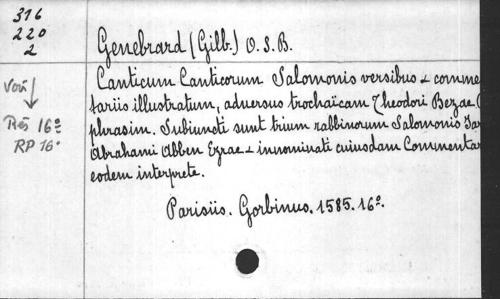 316
220
2
Genebrard (Gilb.) O. S. B.
Canticum Canticorum Salomonis versibus & comme
tariis illustratum, adversus trochaïcam Theodori Bezae (
phrasim. Subiuncti sunt trium rabbinorum Salomonis Jar
Abrahami Abben Ezrae & innominati cuiusdam Commenta
eodem interprete.
Parisiis. Gorbinus. 1585. 16º.
Voir
Rés 16º
RP 16º